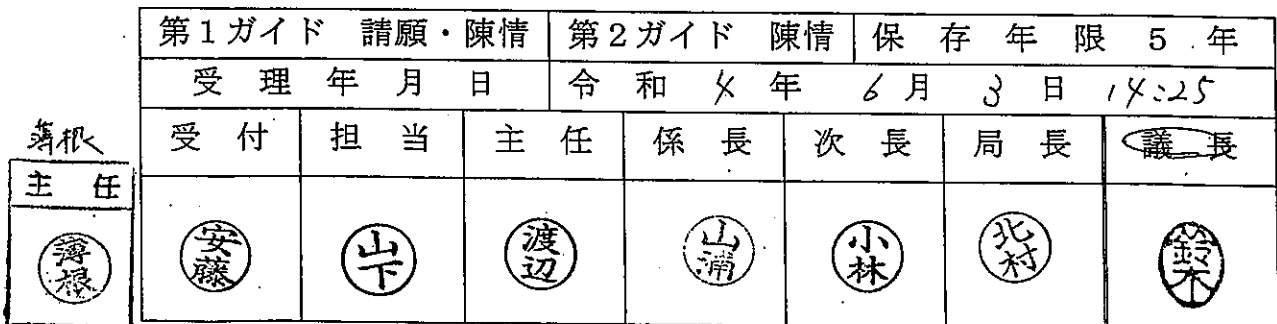 第1ガイド 請願・陳情 第2ガイド 陳情 保存年限 5年
受理年月日 令和4年6月3日 14:25
薄根
受付 担当 主任 係長 次長 局長 議長
主任
薄根 安藤 山下 渡辺 山浦 小林 北村 鈴木